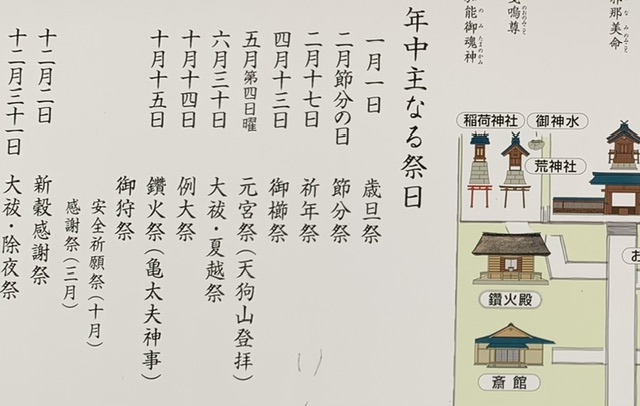 那美命
嗚尊
能御魂神
年中主なる祭日
一月一日 歳旦祭
二月節分の日 節分祭
二月十七日 祈年祭
四月十三日 御櫛祭
五月第四日曜 元宮祭(天狗山登拝)
六月三十日 大祓・夏越祭
十月十四日 例大祭
十月十五日 鑽火祭(亀太夫神事)
御狩祭
安全祈願祭(十月)
感謝祭(三月)
十二月二日 新穀感謝祭
十二月三十一日 大祓・除夜祭
稲荷神社
御神水
荒神社
鑽火殿
斎館
お